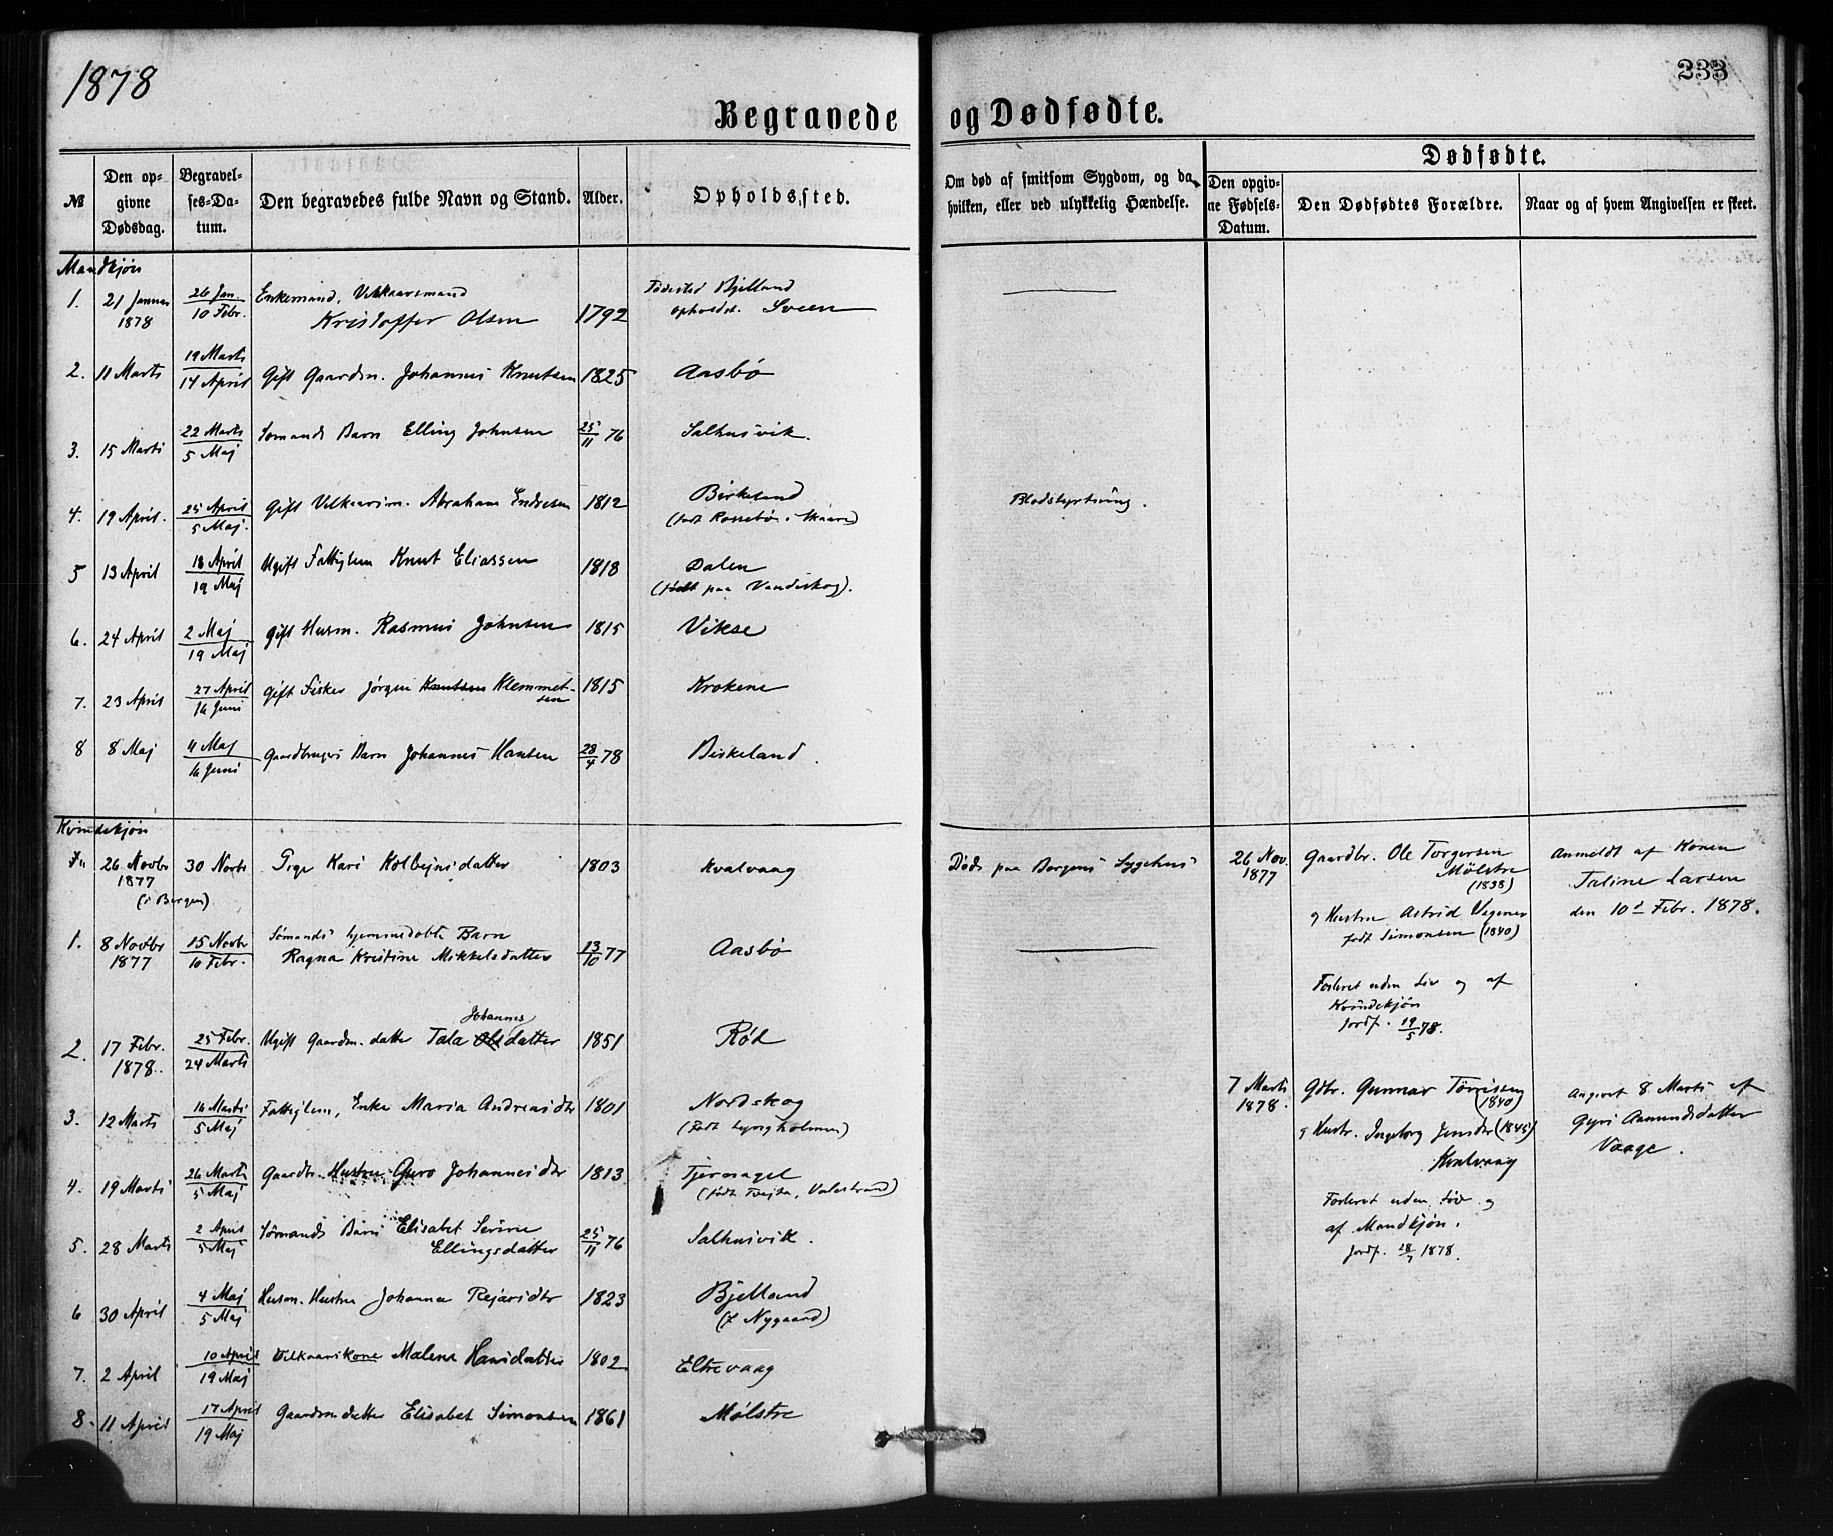 1878
233
Begravede og Dødfødte.
№
Den opgivne Dødsdag.
Begravelses-Datum.
Den begravedes fulde Navn og Stand.
Alder.
Opholdssted.
Om død af smitsom Sygdom, og da hvilken, eller ved ulykkelig Hændelse.
Dødfødte.
Den opgivne Fødsels-Datum.
Den Dødfødtes Forældre.
Naar og af hvem Angivelsen er skeet.
Mandkjøn
1. 21 Januar 1878 26 Jan. 10 Febr. Enkemand, Vilkaarsmand Kristoffer Olsen 1792 Fødested Bjelland opholdss. Sveen
2. 11 Marts 19 Marts 14 April Gift Gaardm. Johannes Knutsen 1825 Aasbø
3. 15 Marts 22 Marts 5 Maj Sømands Barn Elling Johnsen 25/11 76 Salhusvik.
4. 19 April. 25 April 5 Maj. Gift Vilkaarsm. Abraham Endresen 1812 Birkeland (født Rossebø i Skaare) Blodstyrtning.
5 13 April 18 April 19 Maj Ugift Fattiglem Knut Eliassen 1818 Dalen (født paa Vandeskog).
6. 24 April 2 Maj 19 Maj Gift Husm. Rasmus Johnsen 1815 Vikse
7. 23 April 27 April 16 Juni Gift Fisker Jørgen Knutsen Klemmetsen 1815 Krokene
8 8 Maj 11 Maj 16 Juni Gaardbrugers Barn Johannes Hansen 28/4 78 Birkeland.
Kvindekjøn
26 Novbr 1877 (i Bergen) 30 Novbr Pige Kari Kolbejnsdatter 1803 Kvalvaag Døde paa Bergens Sygehus
1. 8 Novbr 1877 15 Novbr 10 Febr. Sømands hjemmedøbte Barn Ragna Kristine Mikkelsdatter 13/10 77 Aasbø
2. 17 Febr. 1878. 25 Febr. 24 Marts Ugift Gaardm. datter Tala Johannes Olsdatter 1851 Rød
3. 12 Marts 16 Marts 5 Maj Fattiglem, Enke Maria Andreasdtr 1801 Nordskog (født Lyngholmen)
4. 19 Marts 26 Marts 5 Maj Gaardbr. Hustru Guro Johannesdtr 1813 Tjernagel (født Tvejta, Valestrand)
5. 28 Marts 2 April 5 Maj Sømands Barn Elisabet Serine Ellingsdatter 25/11 76 Salhusvik.
6 30 April 4 Maj 5 Maj Husm. Hustru Johanna Rejarsdtr 1823 Bjelland (f. Nygaard)
7. 2 April 10 April 19 Maj Vilkaarskone Malena Hansdatter 1802 Eltrevaag
8. 11 April 17 April 19 Maj Gaardm datter Elisabet Simonsen 1861 Mølstre
26 Nov. 1877 Gaardbr. Ole Torgersen Mølstre (1838)
g Hustru Astrid Vegener født Simonsen (1840)
Foderet uden Liv og af Kvindekjøn
Jordf. 19/5 78.
Anmeldt af Konen
Taline Larsen
den 10d Febr. 1878.
7 Marts 1878. Gdbr. Gunnar Tørrissen (1840)
g Hustr. Ingeborg Jensdtr (1845) Kvalvaag
Foderet uden Liv og
af Mandkjøn.
Jordf. 28/7 1878.
Angivet 8 Marts af
Gyri Aamundsdatter
Vaage.